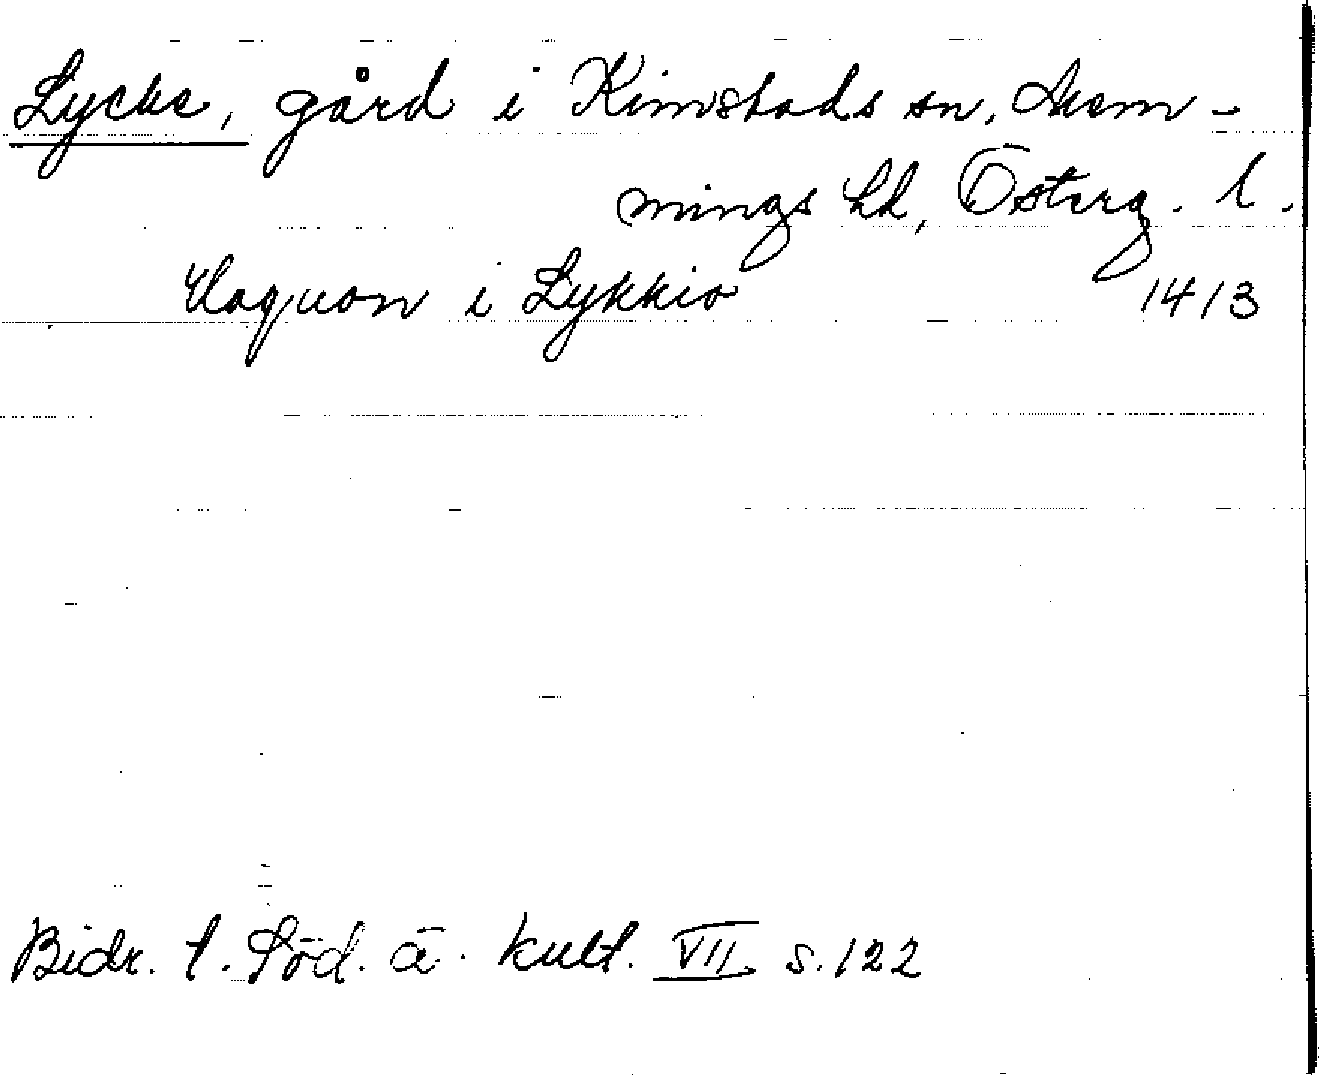 Lycke, gård i Kimstads sn, Mem-
mings hd, Österg. l.
Haquon i Lykkio 1413
Bidr. t. Söd. ä. kult. VII s.122